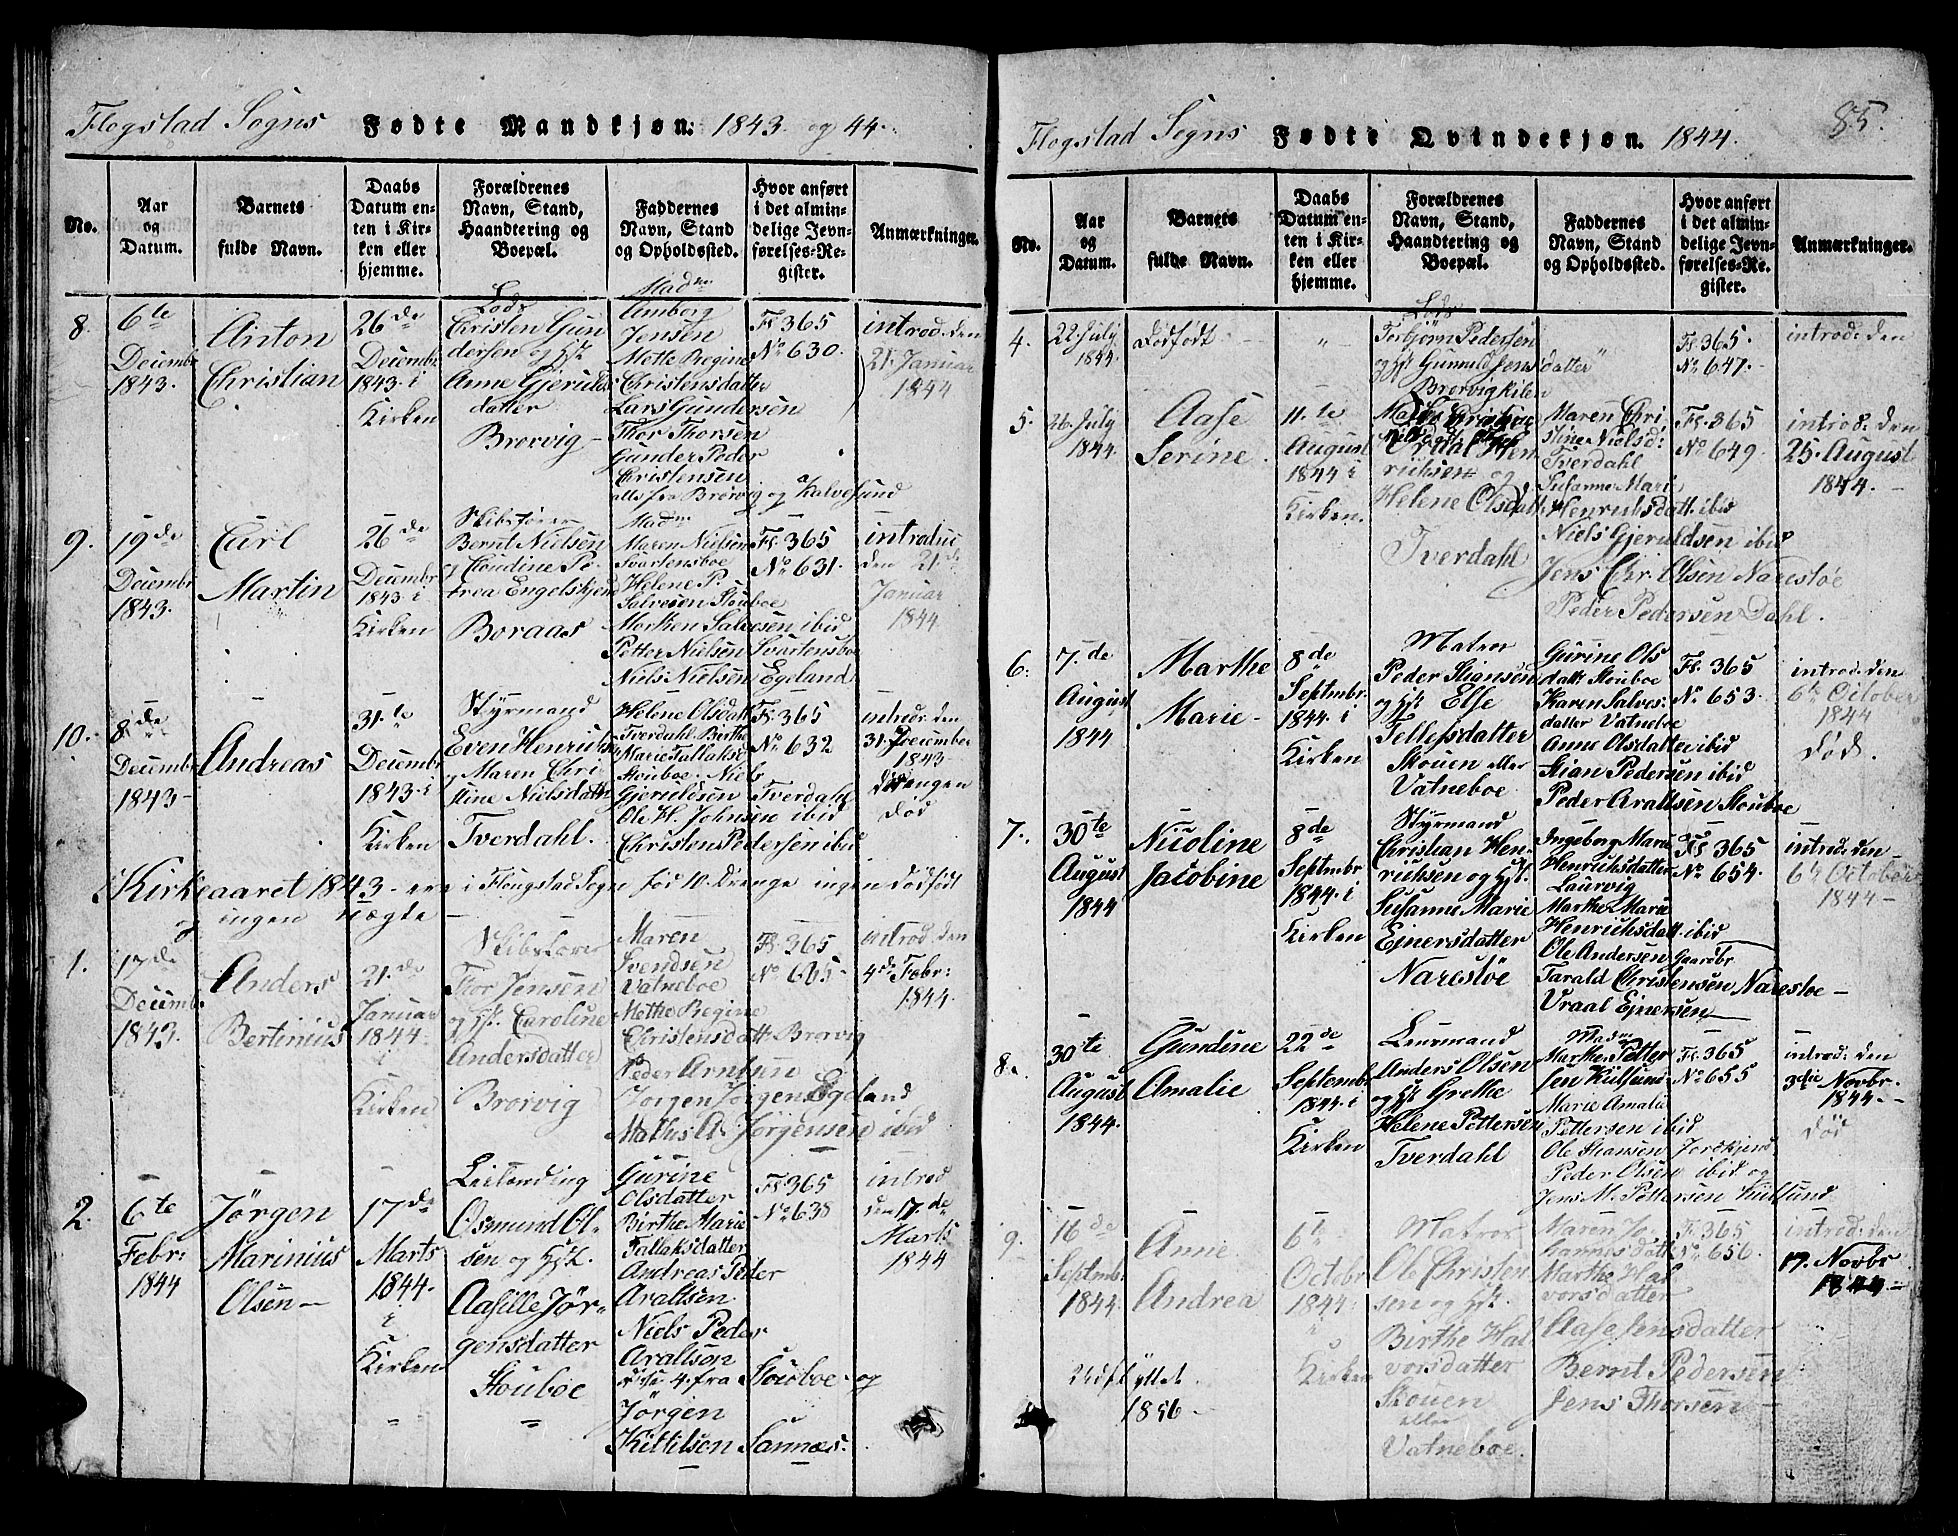 Flogstad Sogns Fødte Mandkjøn. 1843. og 44.
No.
Aar
og
Datum.
Barnets
fulde Navn.
Daabs
Datum en-
ten i Kir-
ken eller
hjemme.
Forældrenes
Navn, Stand,
Haandtering og
Boepæl.
Faddernes
Navn, Stand
og Opholdssted.
Hvor anført
i det almin-
delige Jevn-
førelses-Re-
gister.
Anmærkninger.
8.
6te
Decembr
1843.
Anton
Christian
26de
Decembr
1843. i
Kirken
Lods
Christen Gun
dersen og Hst.
Anne Gjerulds
datter
Brørvig
Madm
Amborg
Jensen
Mette Regine
Christensdatter
Lars Gundersen
Thor Thorsen
Gunder Peder
Christensen
alle fra Brørvig og Kalvesund
Fl. 365
No 630.
introd. den
21. Januar
1844
9.
19de
Decembr
1843.
Carl
Martin
26de
Decembr
1843. i
Kirken
Skibsfører
Bernt Nielsen
og Claudine Pe-
trea Engelskjen
Boraas
Madm
Maren Nielsen
Svartensboe
Helene P.
Salvesen Stouboe
Morthen Salvesen ibid
Petter Nielsen Svartensboe
Niels Nielsen Egeland
Fl. 365
No 631.
introduc
den 21de
Januar
1844
10.
8de
Decembr
1843
Andreas
31te
Decembr
1843. i
Kirken
Styrmand
Even Henrichs
og Maren Chri
stine Nielsdattr
Tverdahl.
Helene Olsdatt.
Tverdahl Birthe
Marie Tallaksd
Stouboe. Niels
Gjeruldsen Tverdahl
Ole H. Johnsen ibid
Christen Pedersen ibid
Fl. 365
No 632
introd. den
31. December
1843
Drengen
død
I Kirkeaaret 1843 ere i Flougstad Sogn fød 10 Drenge ingen dødfødt
og ingen uægte
1.
17de
Decembr
1843.
Anders
Bertinius
21de
Januar
1844
i
Kirken
Skibsfører
Thor Jensen
og Hst. Caroline
Andersdatter
Brørvig
Maren
Svendsen
Vatneboe
Methe Regine
Christensdatt. Brørvig
Peder Arntsen
Jørgen Jørgensen Egeland
Mathis A. Jørgensen ibid
Fl. 365
No 605
introd. den
4de Febr:
1844.
2.
6te
Febr:
1844
Jørgen
Marinius
Olsen
17de
Marts
1844.
i
Kirken
Leilending
Osmund Ol-
sen og Hst.
Aasille Jør-
gensdatter
Stouboe
Gurine
Olsdatter
Birthe Marie
Tallaksdatter
Andreas Peder
Araltsen
Niels Peder
Araltsøn
disse 4 fra Stouboe og
Jørgen
Kittilsen Sannæs.
Fl. 365
No 638
introd
den 17de
Marts
1844
Flogstad Sogns Fødte Qvindekjøn. 1844. 85.
No.
Aar
og
Datum.
Barnets
fulde Navn.
Daabs
Datum en-
ten i Kir-
ken eller
hjemme.
Forældrenes
Navn, Stand,
Haandtering og
Boepæl.
Faddernes
Navn, Stand
og Opholdssted.
Hvor anført
i det almin-
delige Jevn-
førelses-Re-
gister.
Anmærkninger.
4.
22 July
1844.
Dødfødt
Lods
Torbjørn Pedersen
og Hst Gunnild Jensdatter
Brørvigkilen
Fl. 365.
No 647.
introd: den
5.
26. July
1844.
Aase
Serine
11te
August
1844 i
Kirken.
Hen
richsen og
Helene Olsdatt
Tverdahl
Maren Chri
stine Nielsd:
Tverdahl
Susanne Marie
Henrichsdatt. ibid
Niels Gjeruldsen ibid
Jens Chr. Olsen Narestøe
Peder Pedersen Dahl.
Fl. 365
No 649.
introd: den
25. August
1844.
6.
7de
August
1844
Marthe
Marie
8de
Septmbr.
1844. i
Kirken
Matros
Peder Stiansen
og Hst Else
Tellefsdatter
Skouen eller
Vatneboe
Gurine Ols
datt. Stouboe
Karen Salves-
datter Vatneboe
Anne Olsdatter ibid
Stian Pedersen ibid
Peder Araltsen Stouboe
Fl. 365
No 653.
introd: den
6te October
1844
død.
7.
30te
August
1844
Nicoline
Jacobine
8de
Septmbr
1844. i
Kirken
Styrmand
Christian Hen-
richsen og Hst.
Susanne Marie
Ejnersdatter
Narestøe
Ingeborg Marie
Henrichsdatter
Laurvig
Marthe Marie
Henrichsdatt. ibid
Ole Andersen Gaardbr.
Tarald Christensen Narestøe
Vraal Ejnersen
Fl. 365
No 654.
introd: den
6te October
1844
8.
30te
August
1844.
Gundine
Amalie
22de
Septembr
1844. i
Kirken
Leurmand
Anders Olsen
og Hst Grethe
Helene Pettersen
Tverdahl
Madm
Marthe Petter
sen Kilsund
Marie Amalie
Pettersen ibid
Ole Stiansen Jordkjend
Peder Olsen ibid og
Jens M. Pettersen Kilsund
Fl. 365
No 655
introd: den
3die Novbr.
1844.
død
9.
16de
Septmbr.
1844.
Anne
Andrea
6te
Octobr
1844
i
Kirken
Matros
Ole Christen
sen og Hst.
Birthe Hal
vorsdatter
Skouen
eller
Vatneboe.
Maren Jo-
hannesdatt.
Marthe Hal
vorsdatter
Aase Jensdatter
Bernt Pedersen
Jens Thorsen
Fl. 365
No 656.
introd: den
17. Novbr
1844.
Udflyttet
1856